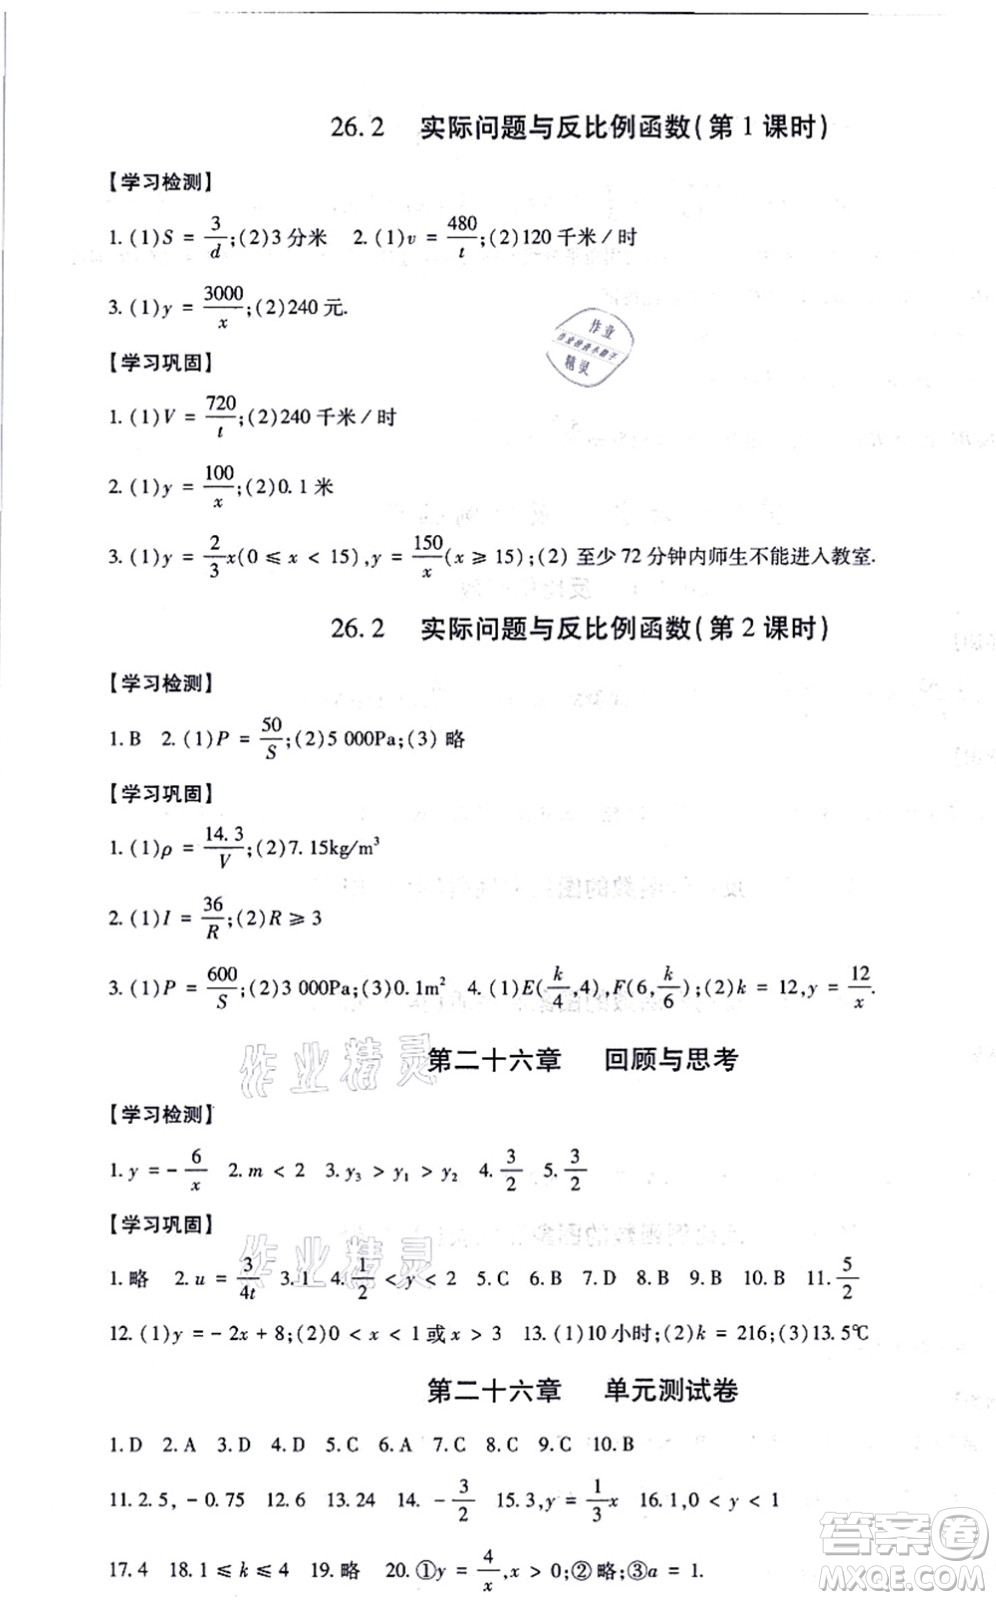 26.2 实际问题与反比例函数(第1课时)
【学习检测】
1. (1)S = 3/d;(2)3分米 2. (1)v = 480/t;(2)120千米/时
3. (1)y = 3000/x;(2)240元.
作业
作业检查小助手
精灵
【学习巩固】
1. (1)V = 720/t;(2)240千米/时
2. (1)y = 100/x;(2)0.1米
3. (1)y = 2/3x(0 ⩽ x < 15),y = 150/x(x ⩾ 15);(2)至少72分钟内师生不能进入教室.
26.2 实际问题与反比例函数(第2课时)
【学习检测】
1. B 2. (1)P = 50/S;(2)5 000Pa;(3)略
【学习巩固】
1. (1)ρ = 14.3/V;(2)7.15kg/m³
2. (1)I = 36/R;(2)R ⩾ 3
3. (1)P = 600/S;(2)3 000Pa;(3)0.1m² 4. (1)E(k/4,4),F(6,k/6);(2)k = 12,y = 12/x.
作业精灵
第二十六章 回顾与思考
【学习检测】
1. y = - 6/x 2. m < 2 3. y₃ > y₁ > y₂ 4. 3/2 5. 3/2
【学习巩固】
作业精灵
1. 略 2. u = 3/4t 3. 1 4. 1/2 < y < 2 5. C 6. B 7. D 8. D 9. B 10. B 11. 5/2
12. (1)y = - 2x + 8;(2)0 < x < 1或x > 3 13. (1)10小时;(2)k = 216;(3)13.5℃
第二十六章 单元测试卷
1. D 2. A 3. D 4. D 5. C 6. A 7. C 8. C 9. C 10. B
11. 2.5, - 0.75 12. 6 13. 24 14. - 3/2 15. 3,y = 1/3x 16. 1,0 < y < 1
17. 4 18. 1 ⩽ k ⩽ 4 19. 略 20. ①y = 4/x,x > 0;②略;③a = 1.
答案卷
MXQE.COM